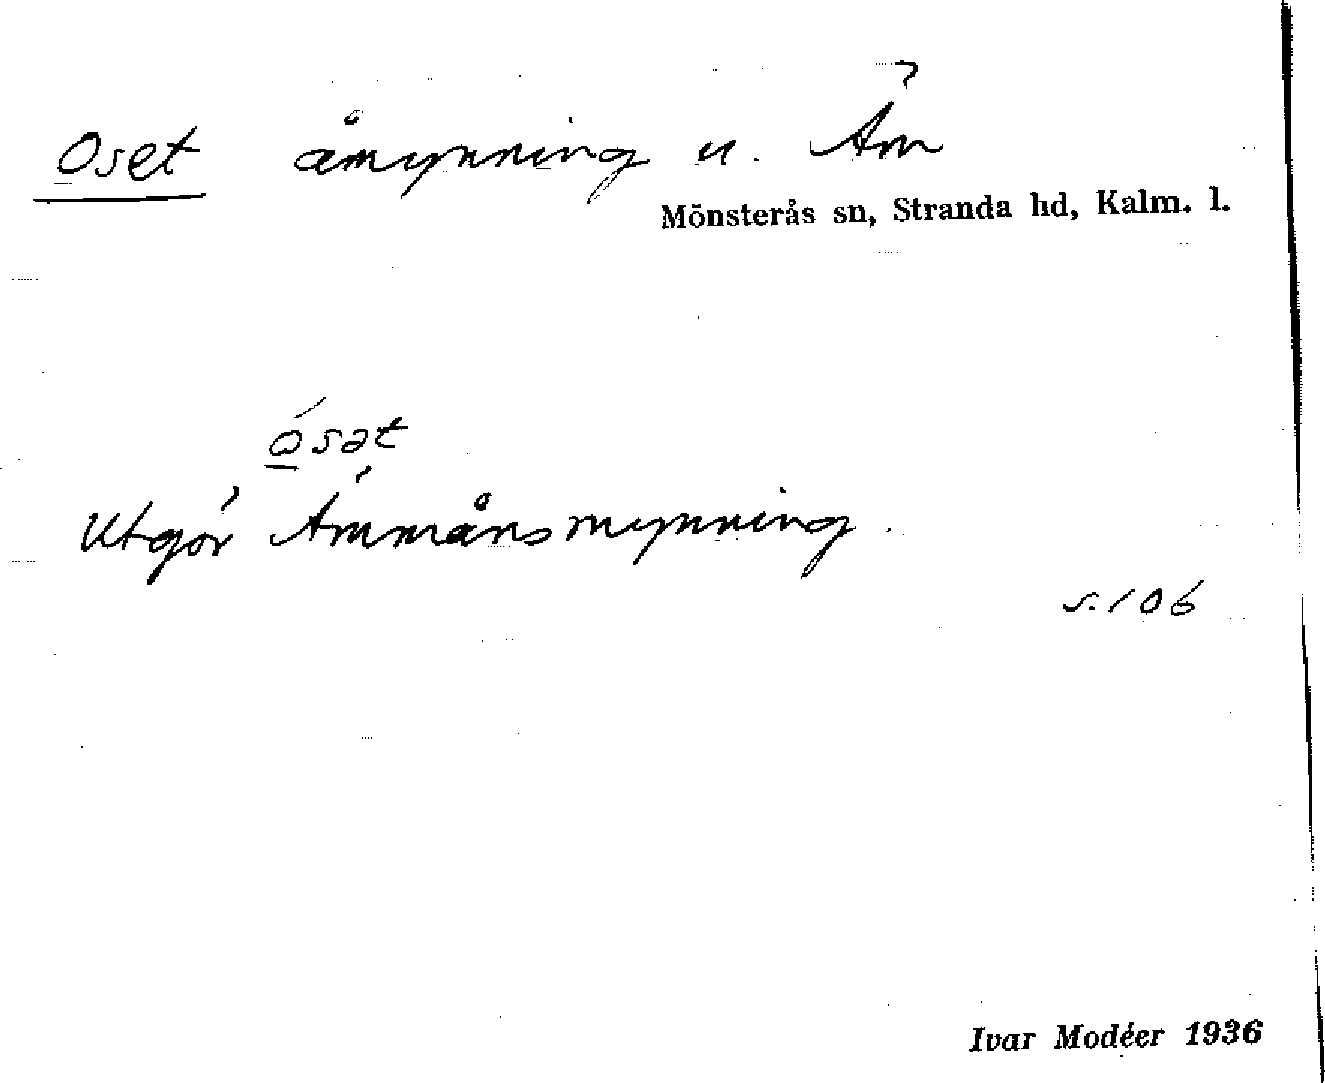 Oset åmynning u. Em
Mönsterås sn, Stranda hd, Kalm. l.
ósət
Utgör Emmåns mynning.
s. 106
Ivar Modéer 1936